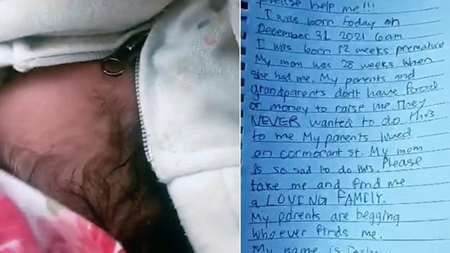 Please help me!!!
I was born today on
December 31 2021 6am.
I was born 12 weeks premature
My mom was 28 weeks when
she had me. My parents and
grandparents dont have food
or money to raise me They
NEVER wanted to do this
to me My parents lived
on cormorant st. My mom
is so sad to do this. Please
take me and find me
a LOVING FAMILY.
My parents are begging
whoever finds me.
My name is